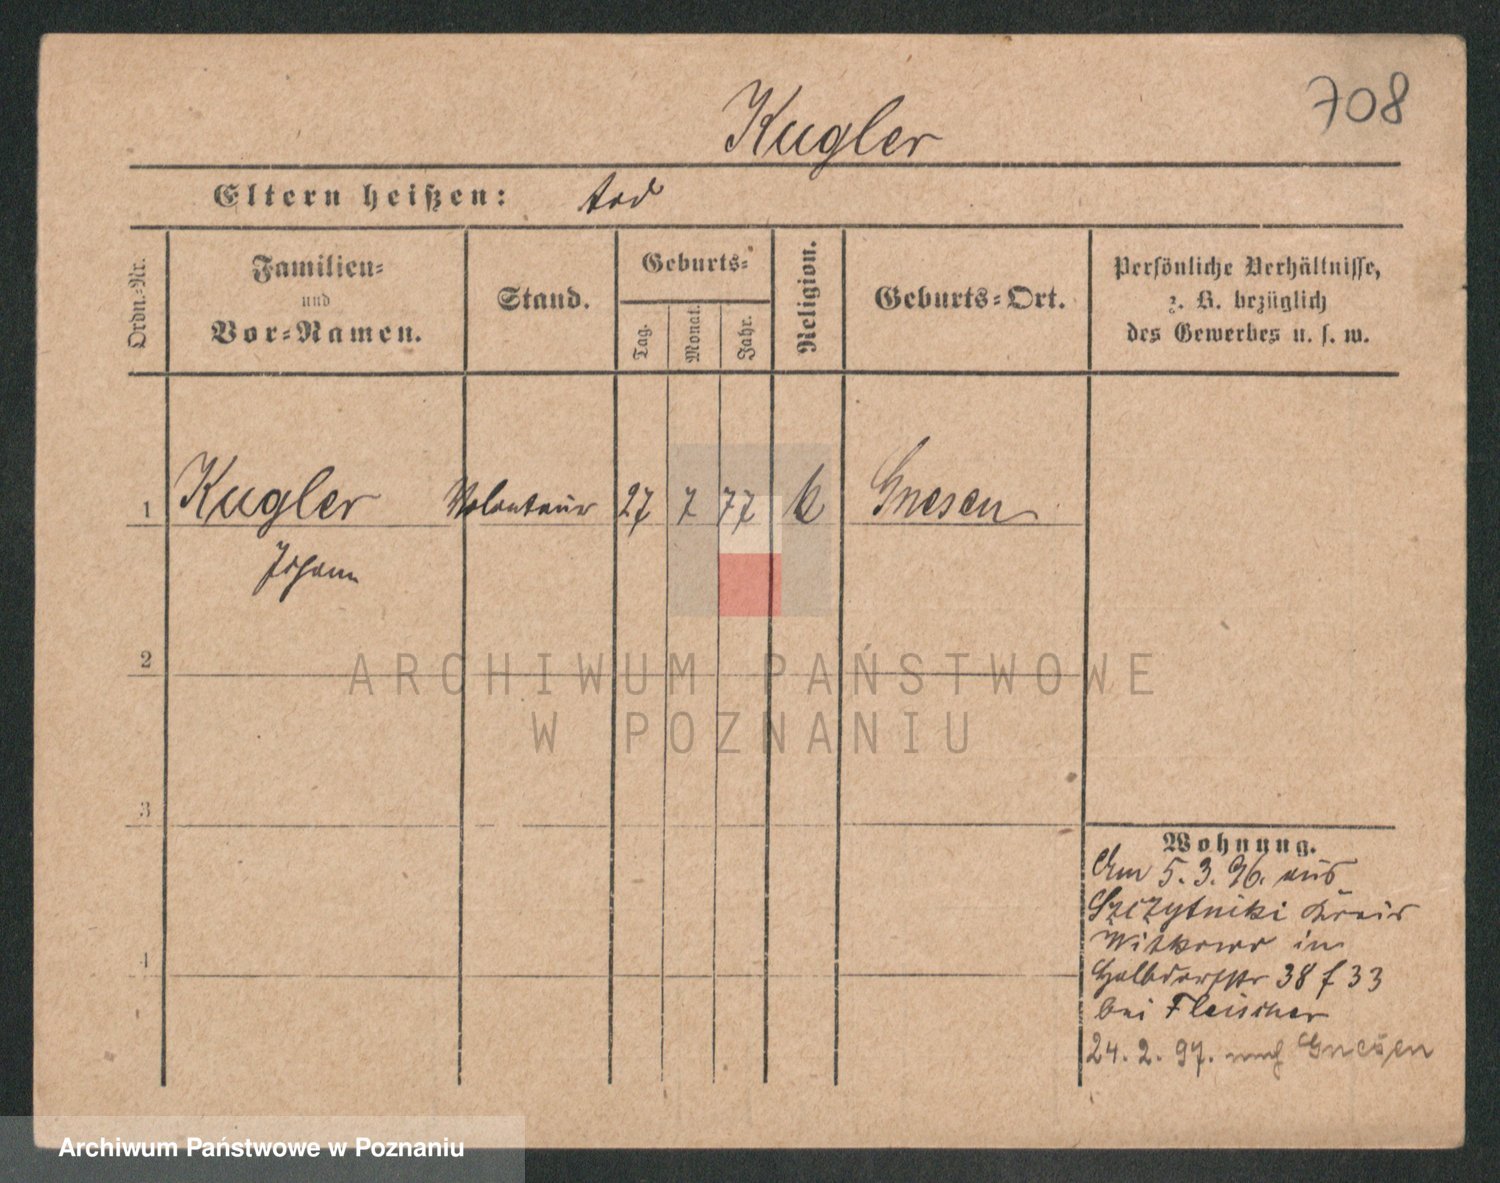 708
Kugler
Eltern heißen: tod
Ordn.-Nr.
Familien-
und
Vor-Namen.
Stand.
Geburts-
Tag.
Monat.
Jahr.
Religion.
Geburts-Ort.
Persönliche Verhältnisse,
z. B. bezüglich
des Gewerbes u. s. w.
1 Kugler Volontair 27 7 77 k Gnesen
Johann
2
ARCHIWUM PAŃSTWOWE
W POZNANIU
3
4
Wohnung.
Am 5. 3. 96. aus
Szczytniki Kreis
Witkowo in
Halbdorfstr 38 f 33
bei Fleischer
24. 2. 97. nach Gnesen
Archiwum Państwowe w Poznaniu